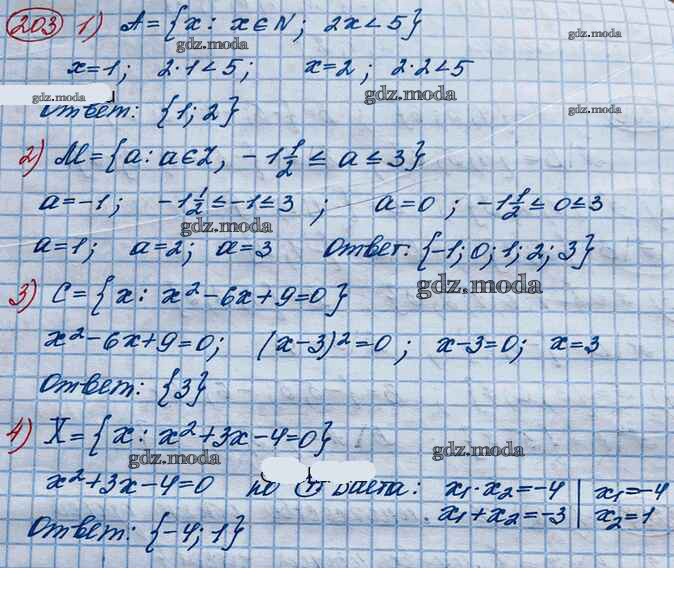 203 1) A={x: x∈N; 2x<5}
gdz.moda gdz.moda
x=1; 2·1<5; x=2; 2·2<5
gdz.moda gdz.moda
Ответ: {1; 2} gdz.moda
2) M={a: a∈Z, -1 1/2 ≤ a ≤ 3}
a=-1; -1 1/2 ≤ -1 ≤ 3; a=0; -1 1/2 ≤ 0 ≤ 3
gdz.moda
a=1; a=2; a=3 Ответ: {-1; 0; 1; 2; 3}
gdz.moda
3) C={x: x²-6x+9=0}
x²-6x+9=0; (x-3)²=0; x-3=0; x=3
Ответ: {3}
4) X={x: x²+3x-4=0}
gdz.moda gdz.moda
x²+3x-4=0 по Т Виета: x₁·x₂=-4 | x₁=-4
x₁+x₂=-3 | x₂=1
Ответ: {-4; 1}
gdz.moda